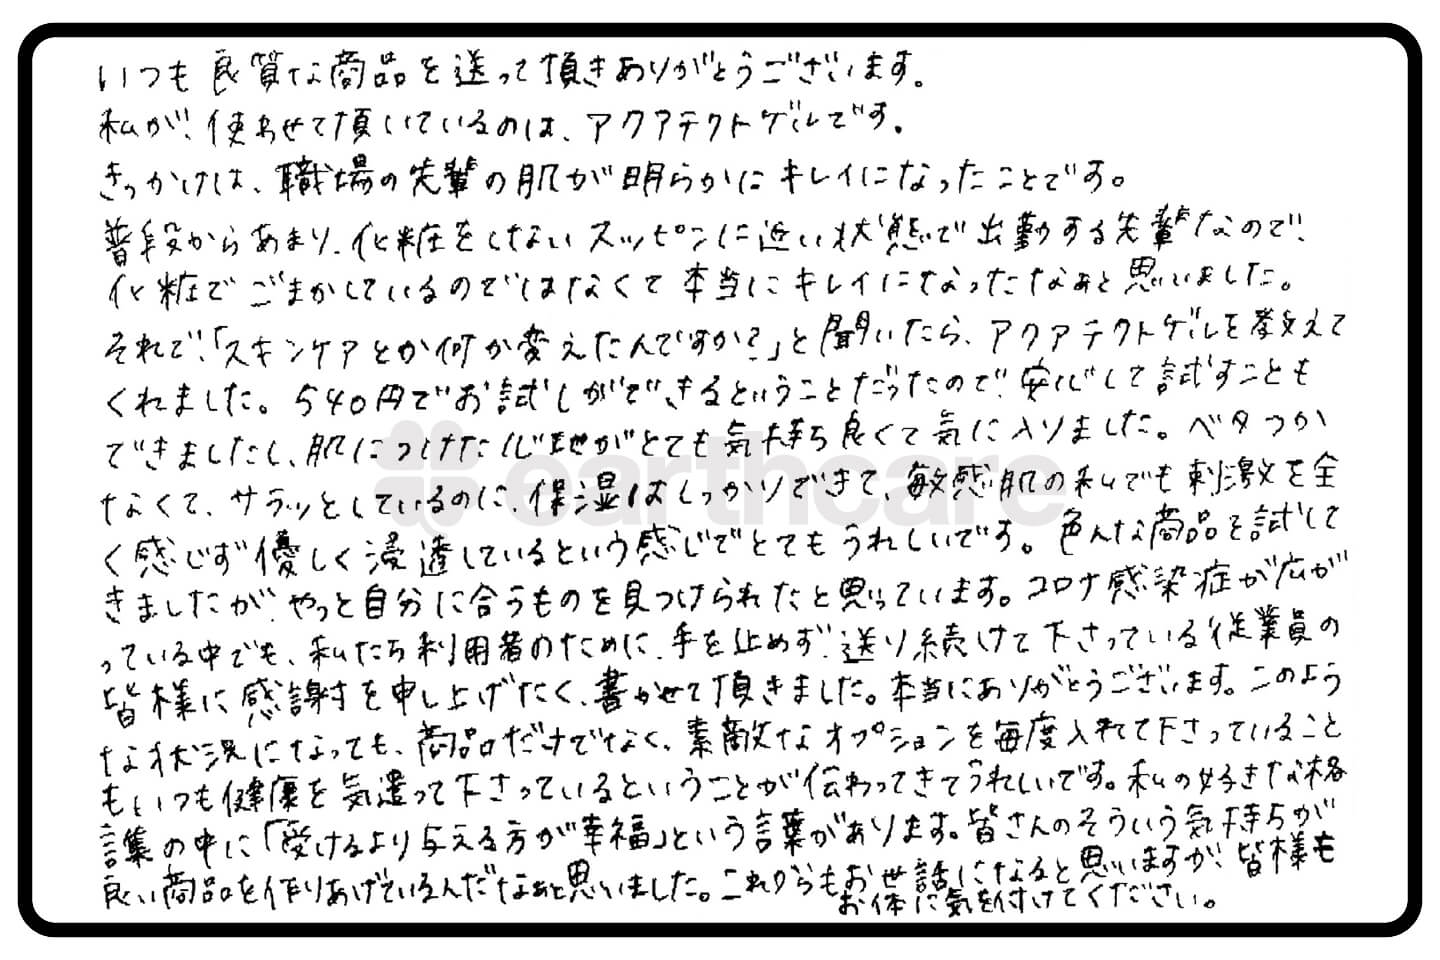 いつも良質な商品を送って頂きありがとうございます。
私が、使わせて頂いているのは、アクアテクトゲルです。
きっかけは、職場の先輩の肌が明らかにキレイになったことです。
普段からあまり、化粧をしないスッピンに近い状態で出勤する先輩なので、
化粧でごまかしているのではなくて本当にキレイになったなぁと思いました。
それで、「スキンケアとか何か変えたんですか?」と聞いたら、アクアテクトゲルを教えて
くれました。540円でお試しができるということだったので、安心して試すことも
できましたし、肌につけた心地がとても気持ち良くて気に入りました。ベタつか
なくて、サラッとしているのに、保湿はしっかりできて、敏感肌の私でも刺激を全
く感じず優しく浸透しているという感じでとてもうれしいです。色んな商品を試して
きましたが、やっと自分に合うものを見つけられたと思っています。コロナ感染症が広が
っている中でも、私たち利用者のために、手を止めず、送り続けて下さっている従業員の
皆様に感謝を申し上げたく、書かせて頂きました。本当にありがとうございます。このよう
な状況になっても、商品だけでなく、素敵なオプションを毎度入れて下さっていること
もいつも健康を気遣って下さっているということが伝わってきてうれしいです。私の好きな格
言集の中に「受けるより与える方が幸福」という言葉があります。皆さんのそういう気持ちが
良い商品を作りあげているんだなぁと思いました。これからもお世話になると思いますが、皆様も
お体に気を付けてください。
earthcare